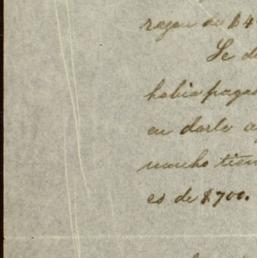 razon de $4
Se d
habia paga
en darle a
mucho tiem
es de $700.